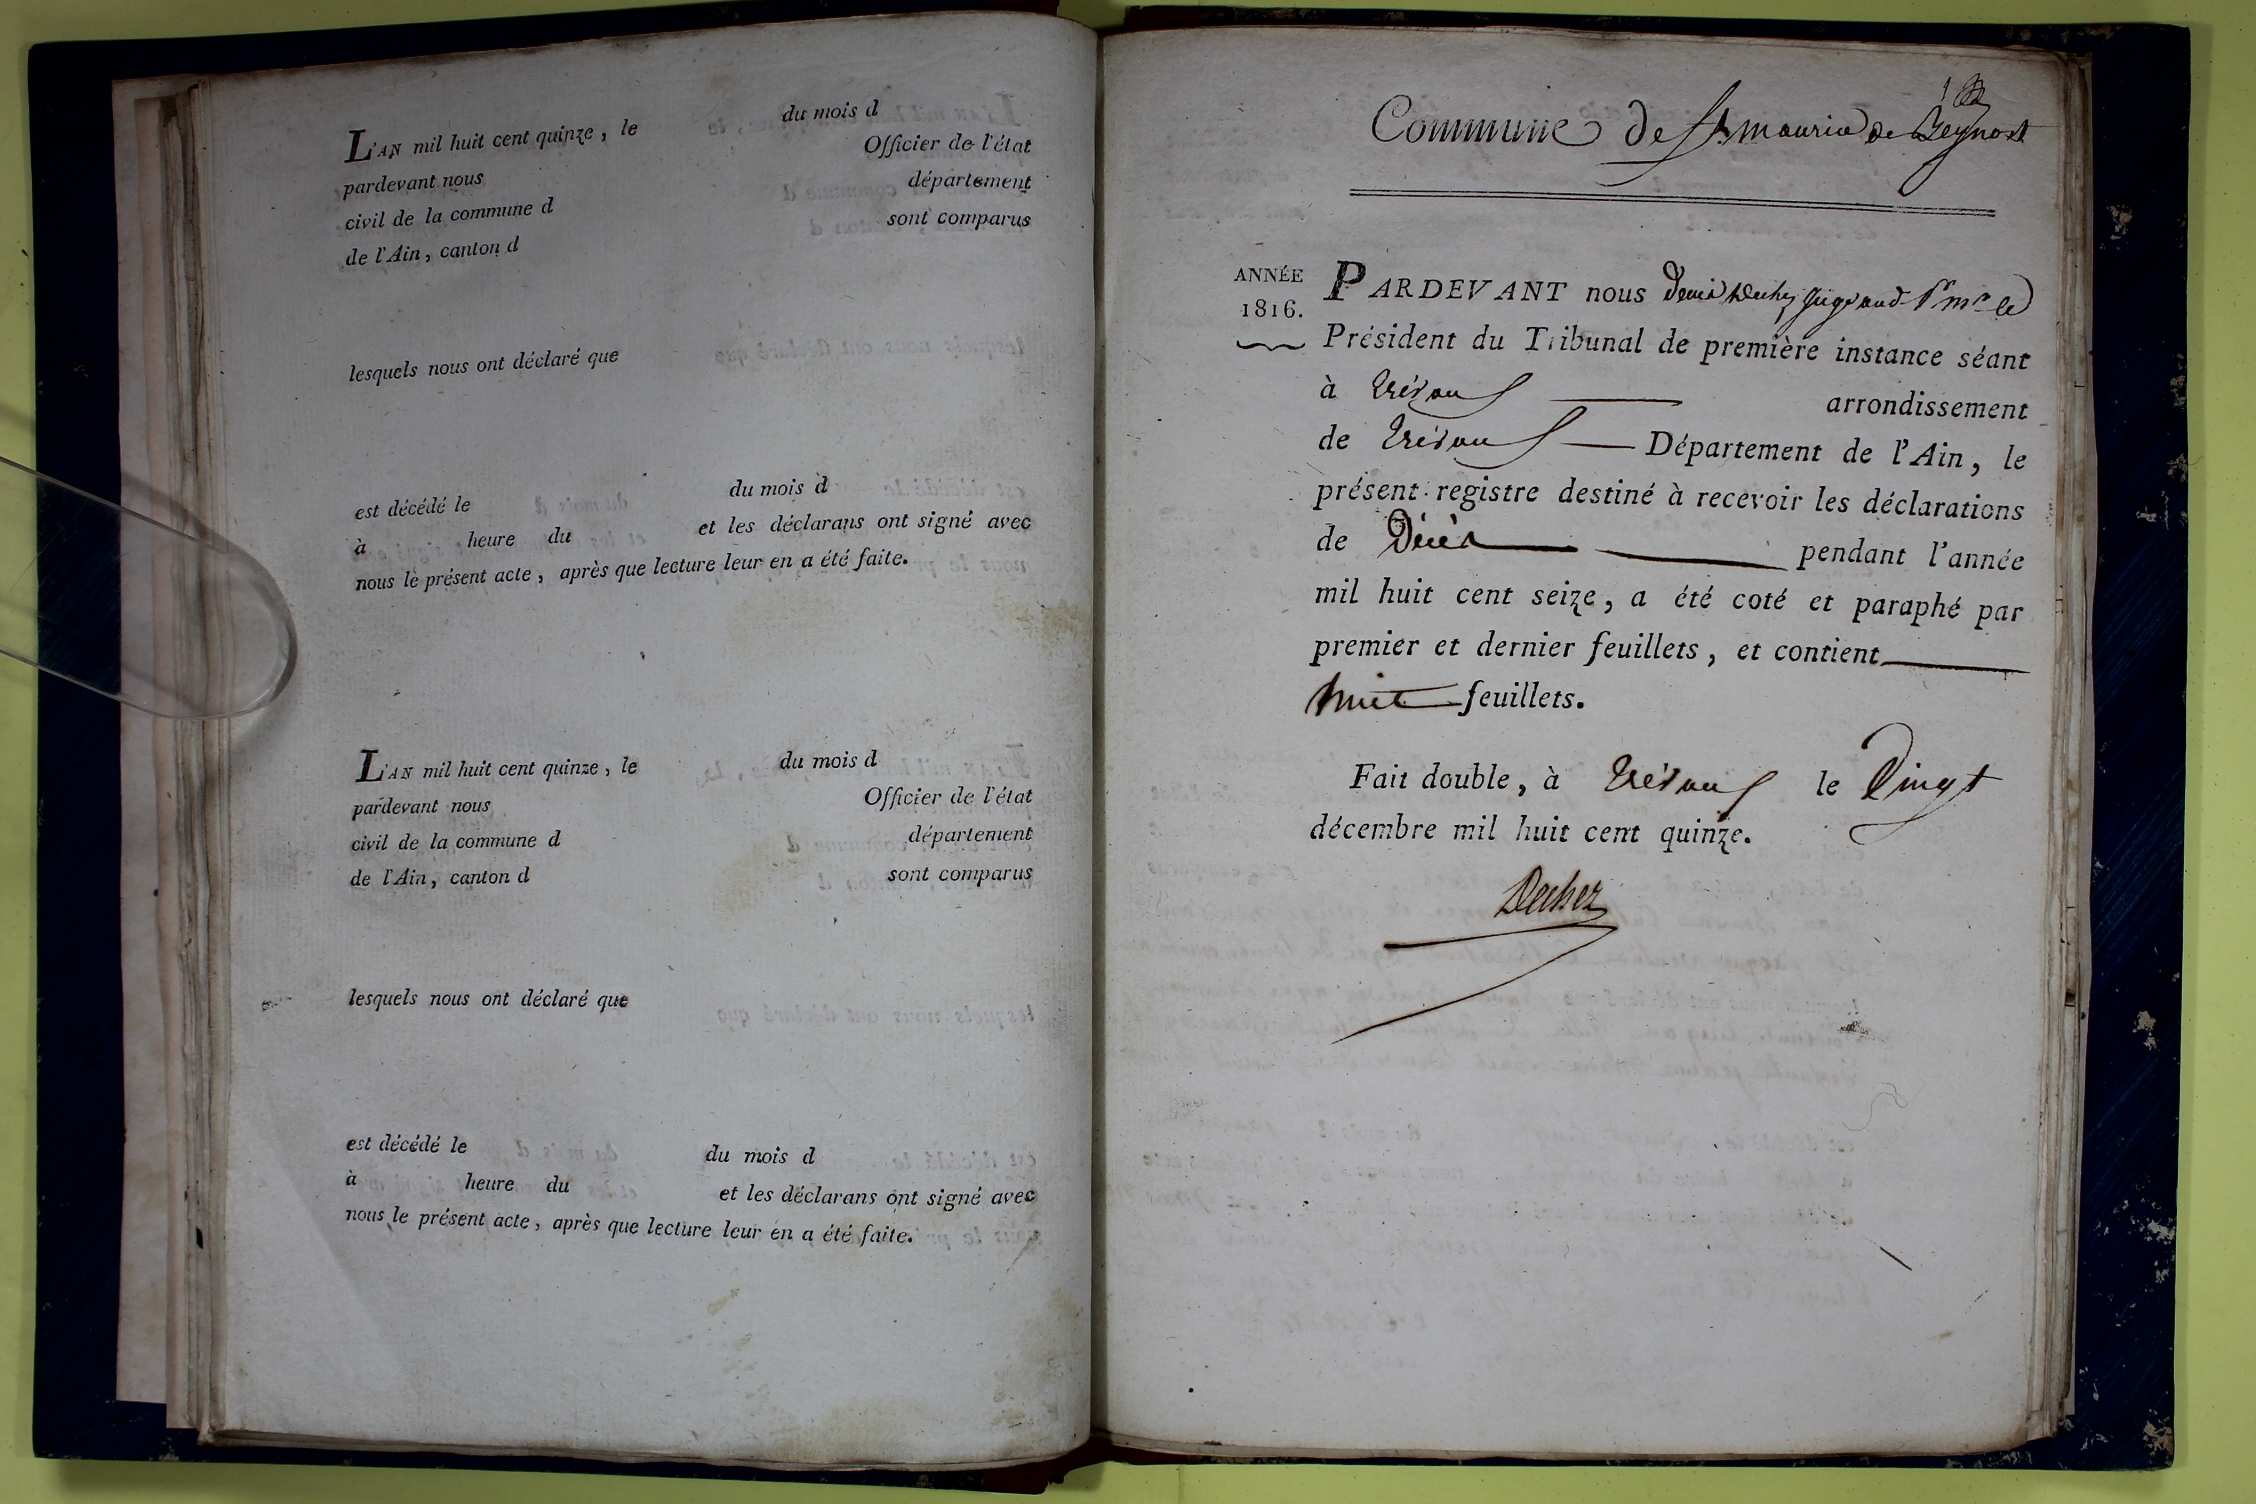 L'AN mil huit cent quinze, le du mois d
pardevant nous Officier de l'état
civil de la commune d département
de l'Ain, canton d sont comparus
lesquels nous ont déclaré que
est décédé le du mois d
à heure du et les déclarans ont signé avec
nous le présent acte, après que lecture leur en a été faite.
L'AN mil huit cent quinze, le du mois d
pardevant nous Officier de l'état
civil de la commune d département
de l'Ain, canton d sont comparus
lesquels nous ont déclaré que
est décédé le du mois d
à heure du et les déclarans ont signé avec
nous le présent acte, après que lecture leur en a été faite.
1
Commune de St maurice de Beynost
ANNÉE
1816.
PARDEVANT nous Denis Dechez juge Mr le
Président du Tribunal de première instance séant
à Trévoux arrondissement
de Trévoux Département de l'Ain, le
présent registre destiné à recevoir les déclarations
de Décès pendant l'année
mil huit cent seize, a été coté et paraphé par
premier et dernier feuillets, et contient
huit feuillets.
Fait double, à Trévoux le Vingt
décembre mil huit cent quinze.
Dechez